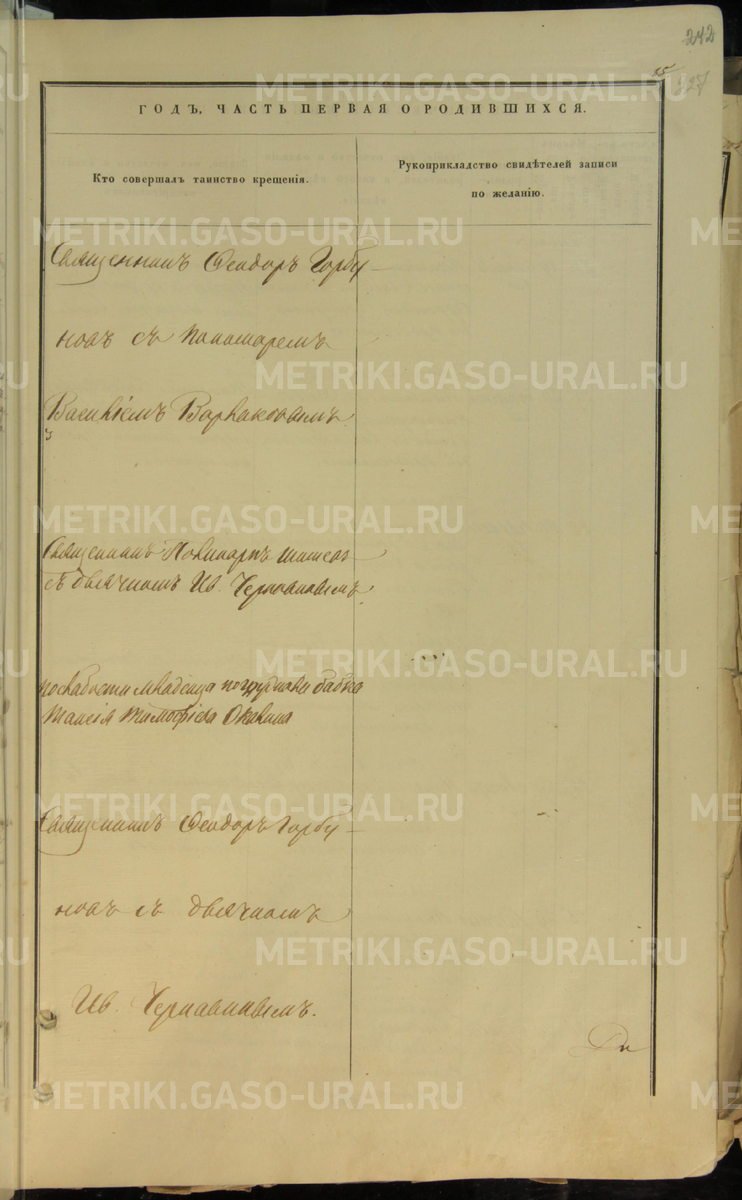 242
227
ГОДЪ, ЧАСТЬ ПЕРВАЯ О РОДИВШИХСЯ.
Кто совершалъ таинство крещенія.
Рукоприкладство свидѣтелей записи
по желанію.
Священникъ Феодоръ Горбу-
новъ съ пономаремъ
Василіемъ Варлаковымъ
Священникъ
съ дьячкомъ Ив. Чернавинымъ
по слабости младенца погружена бабка
Тимофіева
Священникъ Феодоръ Горбу-
новъ съ дьячкомъ
Ив. Чернавинымъ.
METRIKI.GASO-URAL.RU